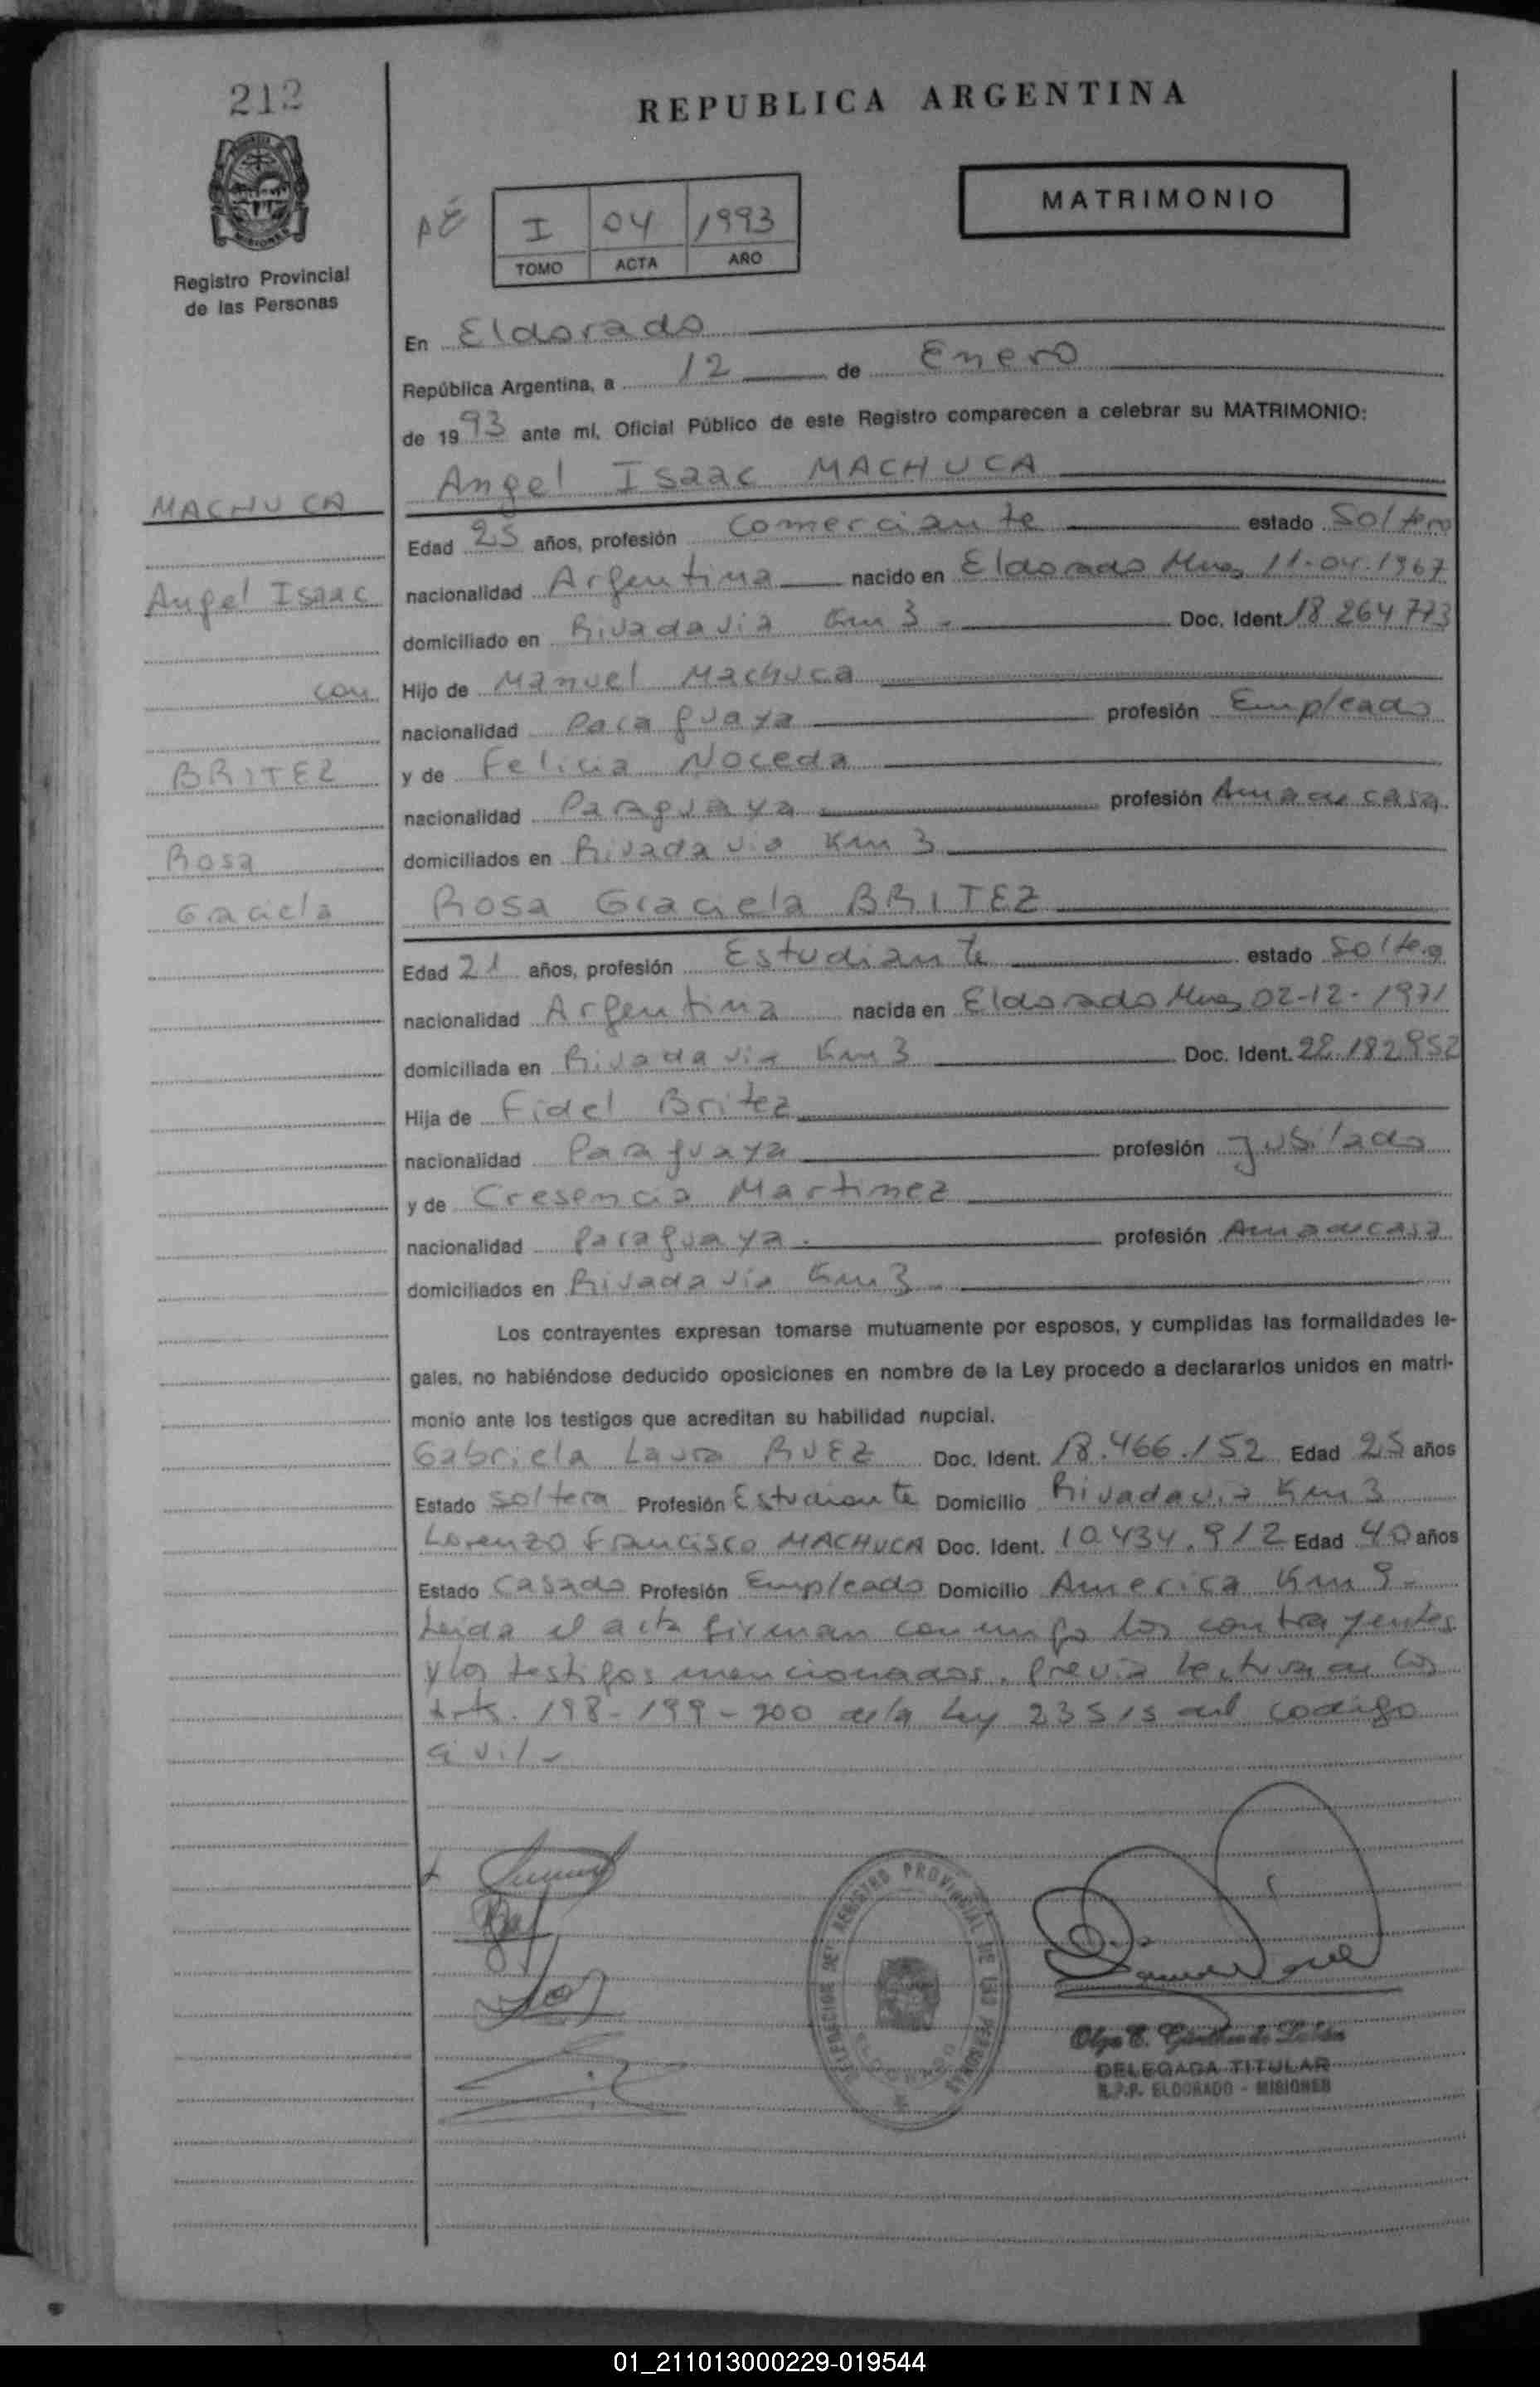 212
REPUBLICA ARGENTINA
MISIONES
Registro Provincial
de las Personas
I 04 1993
TOMO ACTA AÑO
MATRIMONIO
En Eldorado
República Argentina, a 12 de Enero
de 1993 ante mí, Oficial Público de este Registro comparecen a celebrar su MATRIMONIO:
Angel Isaac MACHUCA
MACHUCA
Angel Isaac
con
BRITEZ
Rosa
Graciela
Edad 25 años, profesión Comerciante estado Soltero
nacionalidad Argentina nacido en Eldorado Mnes 11-04-1967
domiciliado en Rivadavia Km 3 - Doc. Ident. 18 264 773
Hijo de Manuel Machuca
nacionalidad Paraguaya profesión Empleado
y de Felicia Noceda
nacionalidad Paraguaya profesión Ama de casa
domiciliados en Rivadavia Km 3
Rosa Graciela BRITEZ
Edad 21 años, profesión Estudiante estado Soltera
nacionalidad Argentina nacida en Eldorado Mnes 02-12-1971
domiciliada en Rivadavia Km 3 Doc. Ident. 22.182.952
Hija de Fidel Britez
nacionalidad Paraguaya profesión Jubilado
y de Cresencia Martinez
nacionalidad Paraguaya. profesión Ama de casa
domiciliados en Rivadavia Km 3 -
Los contrayentes expresan tomarse mutuamente por esposos, y cumplidas las formalidades le-
gales, no habiéndose deducido oposiciones en nombre de la Ley procedo a declararlos unidos en matri-
monio ante los testigos que acreditan su habilidad nupcial.
Gabriela Laura RUEZ Doc. Ident. 18.466.152 Edad 25 años
Estado Soltera Profesión Estudiante Domicilio Rivadavia Km 3
Lorenzo Francisco MACHUCA Doc. Ident. 10.434.912 Edad 40 años
Estado Casado Profesión Empleado Domicilio America Km 9 -
Leida el acta firman conmigo los contrayentes
y los testigos mencionados. Previa lectura de los
arts. 198-199-200 de la Ley 23515 del codigo
civil -
REGISTRO PROVINCIAL DE LAS PERSONAS
DELEGADA TITULAR
R.P.P. ELDORADO - MISIONES
01_211013000229-019544